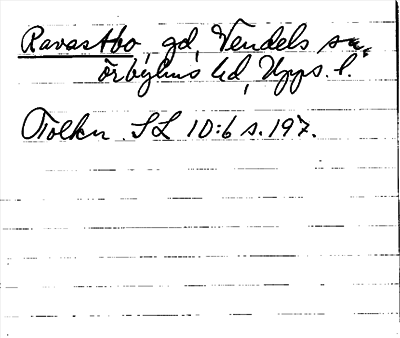 Ravastbo, gd, Vendels sn,
Örbyhus hd, Upps. l.
Tolkn. SL 10:6 s. 197.